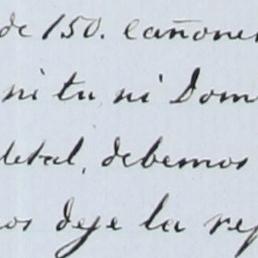 de 150. cañone
ni tu, ni Dom
letal, debemos
os deje la rep